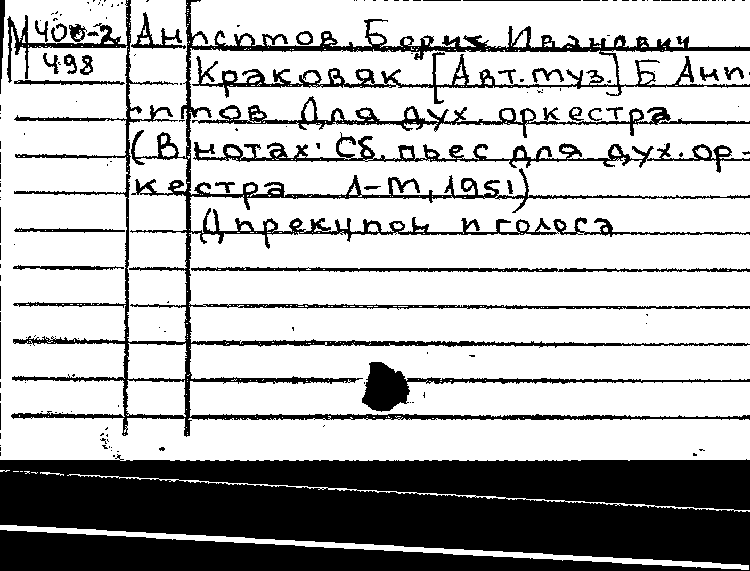 М 400-2
498
Анисимов, Борис Иванович
Краковяк [Авт. муз.] Б Ани-
симов Для дух. оркестра.
(В нотах: Сб. пьес для дух. ор-
кестра 1-М, 1951)
Дирекцион и голоса